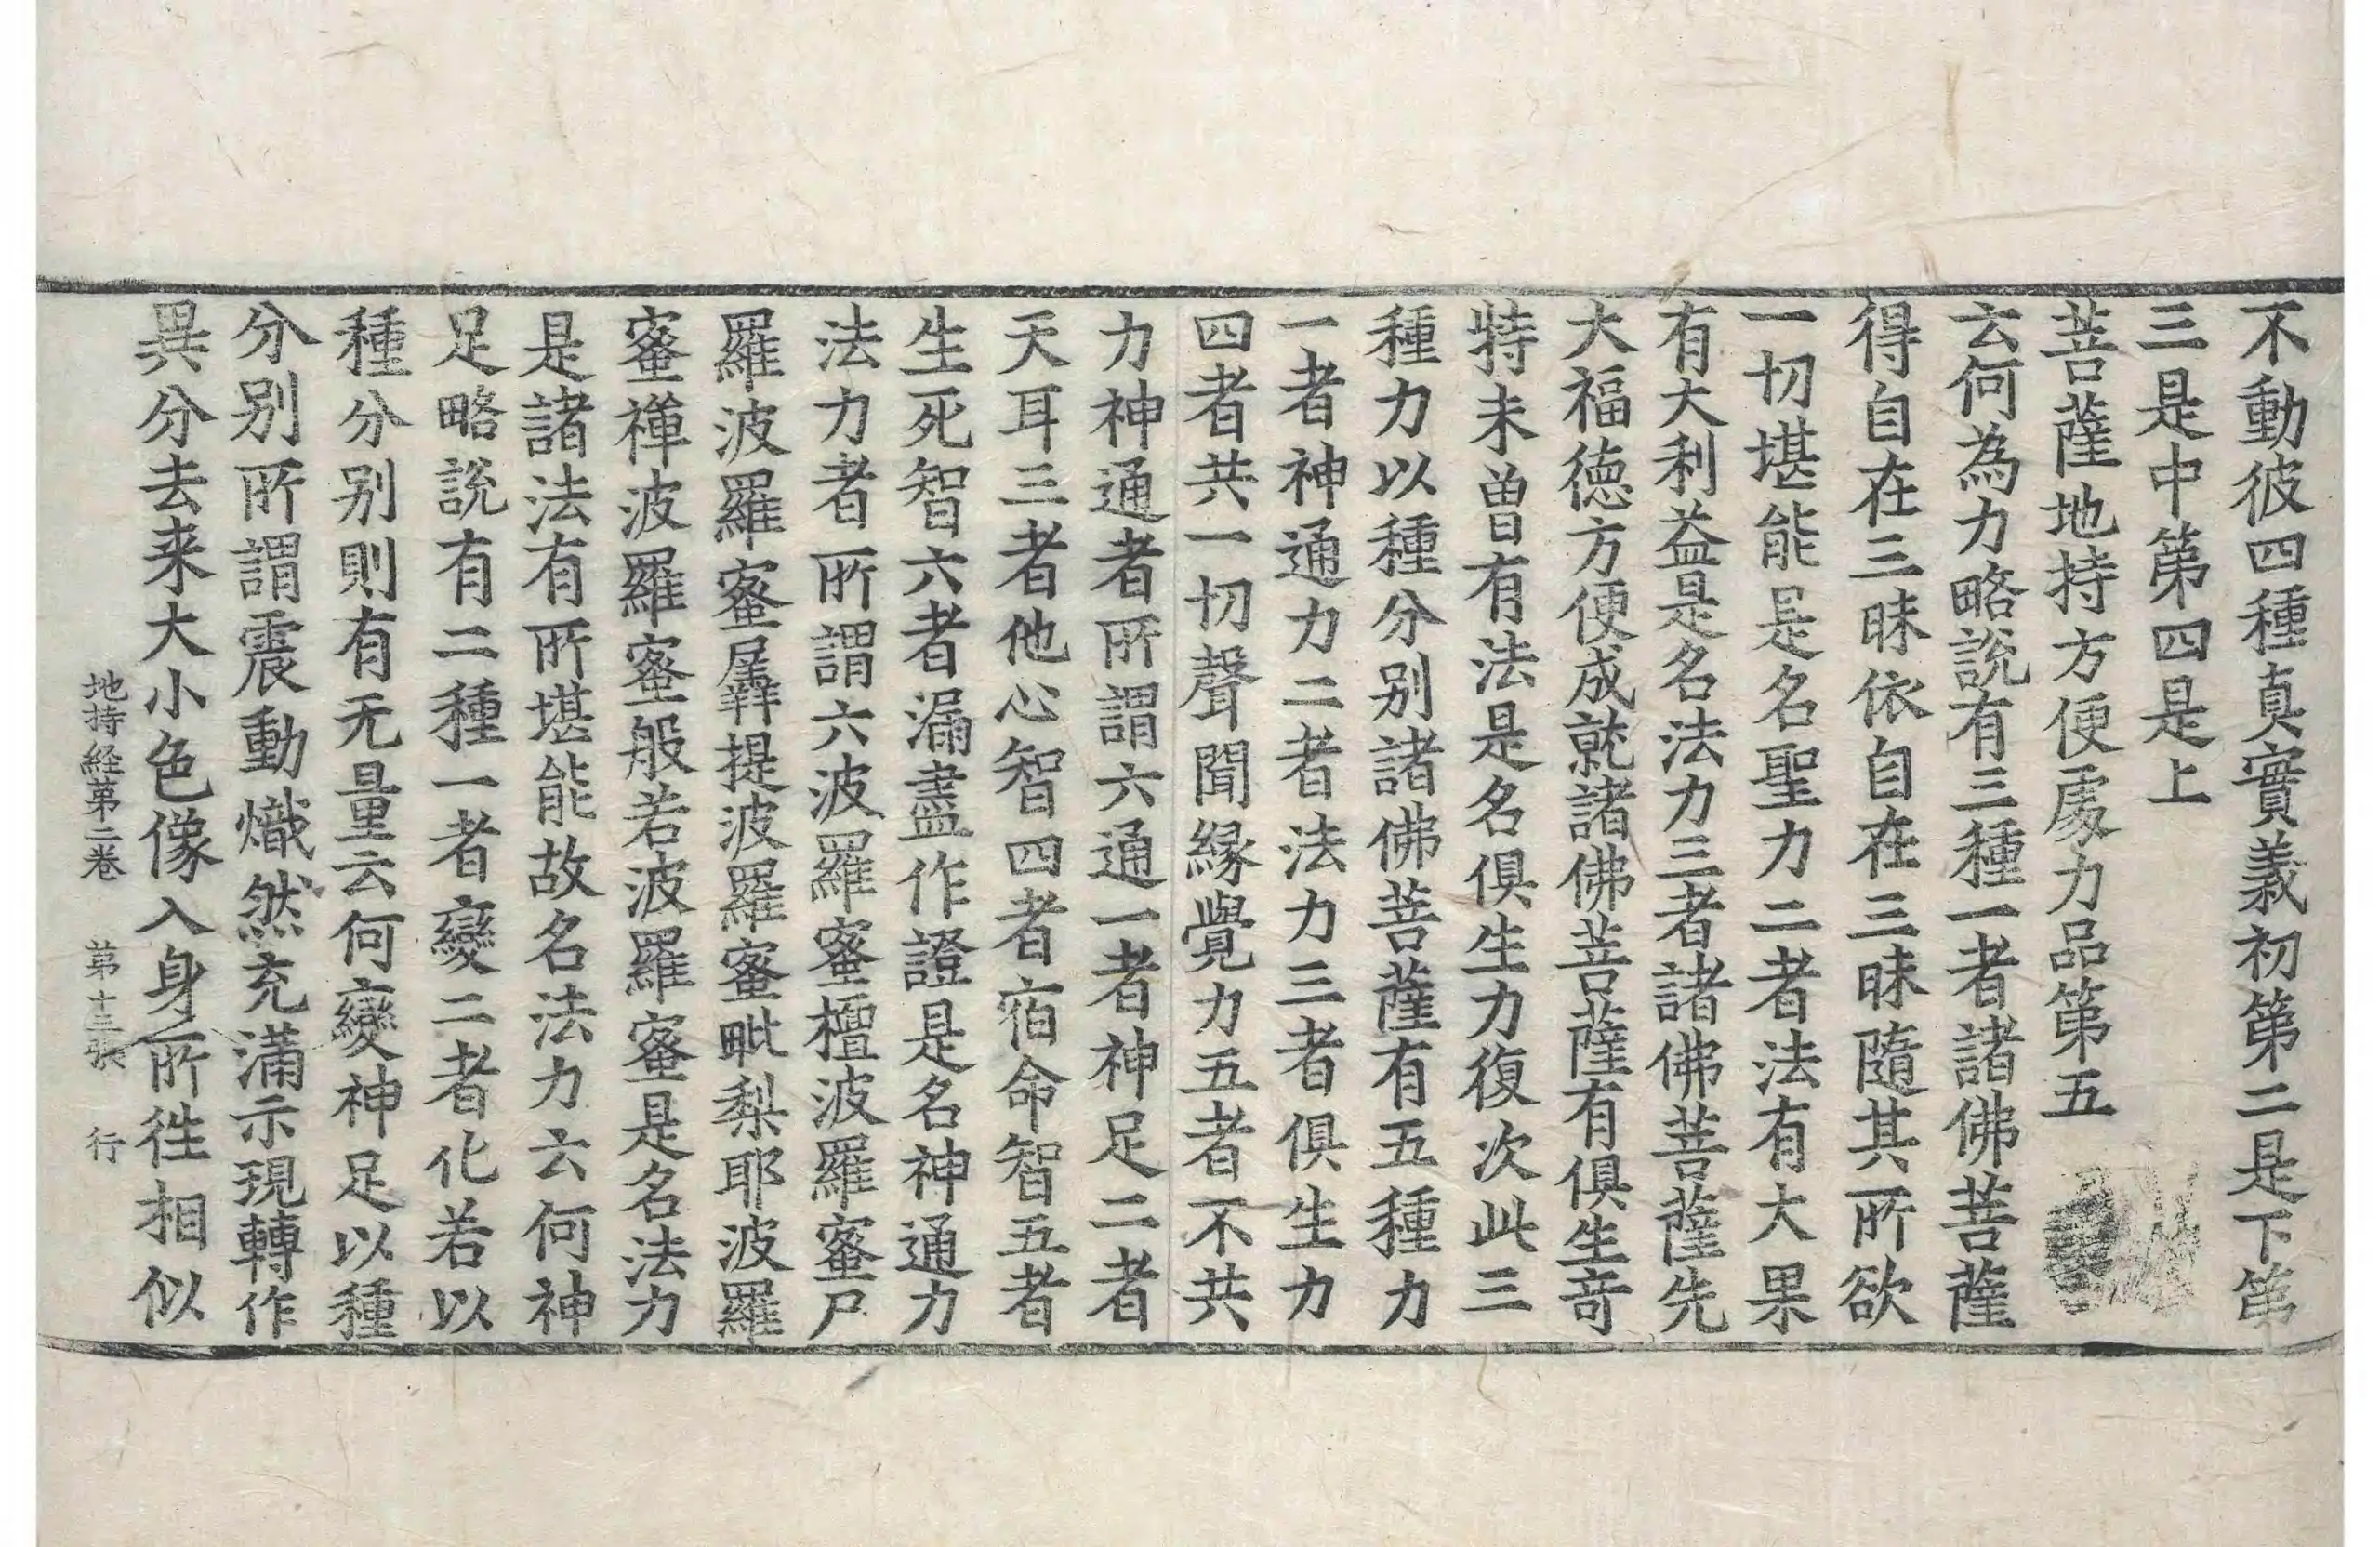 不動彼四種真實義初第二是下第
三是中第四是上
菩薩地持方便處力品第五
云何為力略說有三種一者諸佛菩薩
得自在三昧依自在三昧隨其所欲
一切堪能是名聖力二者法有大果
有大利益是名法力三者諸佛菩薩先
大福德方便成就諸佛菩薩有俱生竒
特未曾有法是名俱生力復次此三
種力以種分别諸佛菩薩有五種力
一者神通力二者法力三者俱生力
四者共一切聲聞緣覺力五者不共
力神通者所謂六通一者神足二者
天耳三者他心智四者宿命智五者
生死智六者漏盡作證是名神通力
法力者所謂六波羅蜜檀波羅蜜尸
羅波羅蜜羼提波羅蜜毗梨耶波羅
蜜禪波羅蜜般若波羅蜜是名法力
是諸法有所堪能故名法力云何神
足略說有二種一者變二者化若以
種分别則有无量云何變神足以種
分别所謂震動熾然充滿示現轉作
異分去来大小色像入身所徃相似
地持経第二卷 第十三張 行